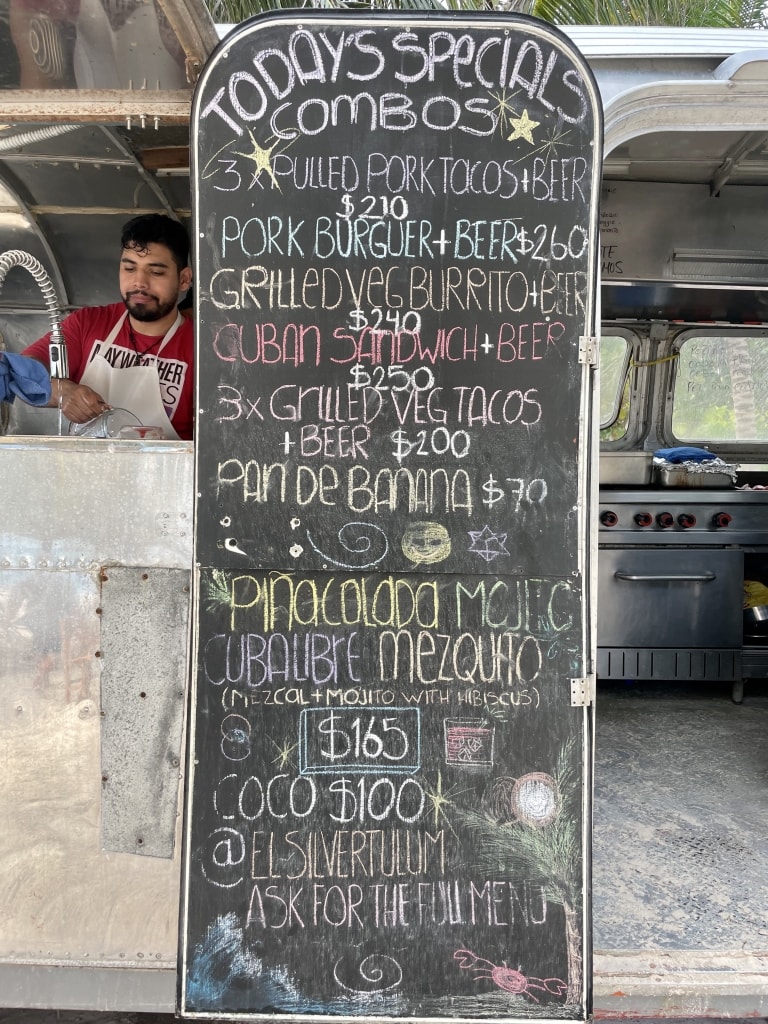 TODAY'S SPECIALS
COMBOS
3 x PULLED PORK TACOS + BEER
$210
PORK BURGUER + BEER $260
GRILLED VEG BURRITO + BEER
$240
CUBAN SANDWICH + BEER
$250
3 x GRILLED VEG TACOS
+ BEER $200
PAN DE BANANA $70
PIÑACOLADA MOJITO
CUBALIBRE MEZQUITO
(MEZCAL + MOJITO WITH HIBISCUS)
$165
COCO $100
@ELSILVERTULUM
ASK FOR THE FULL MENU